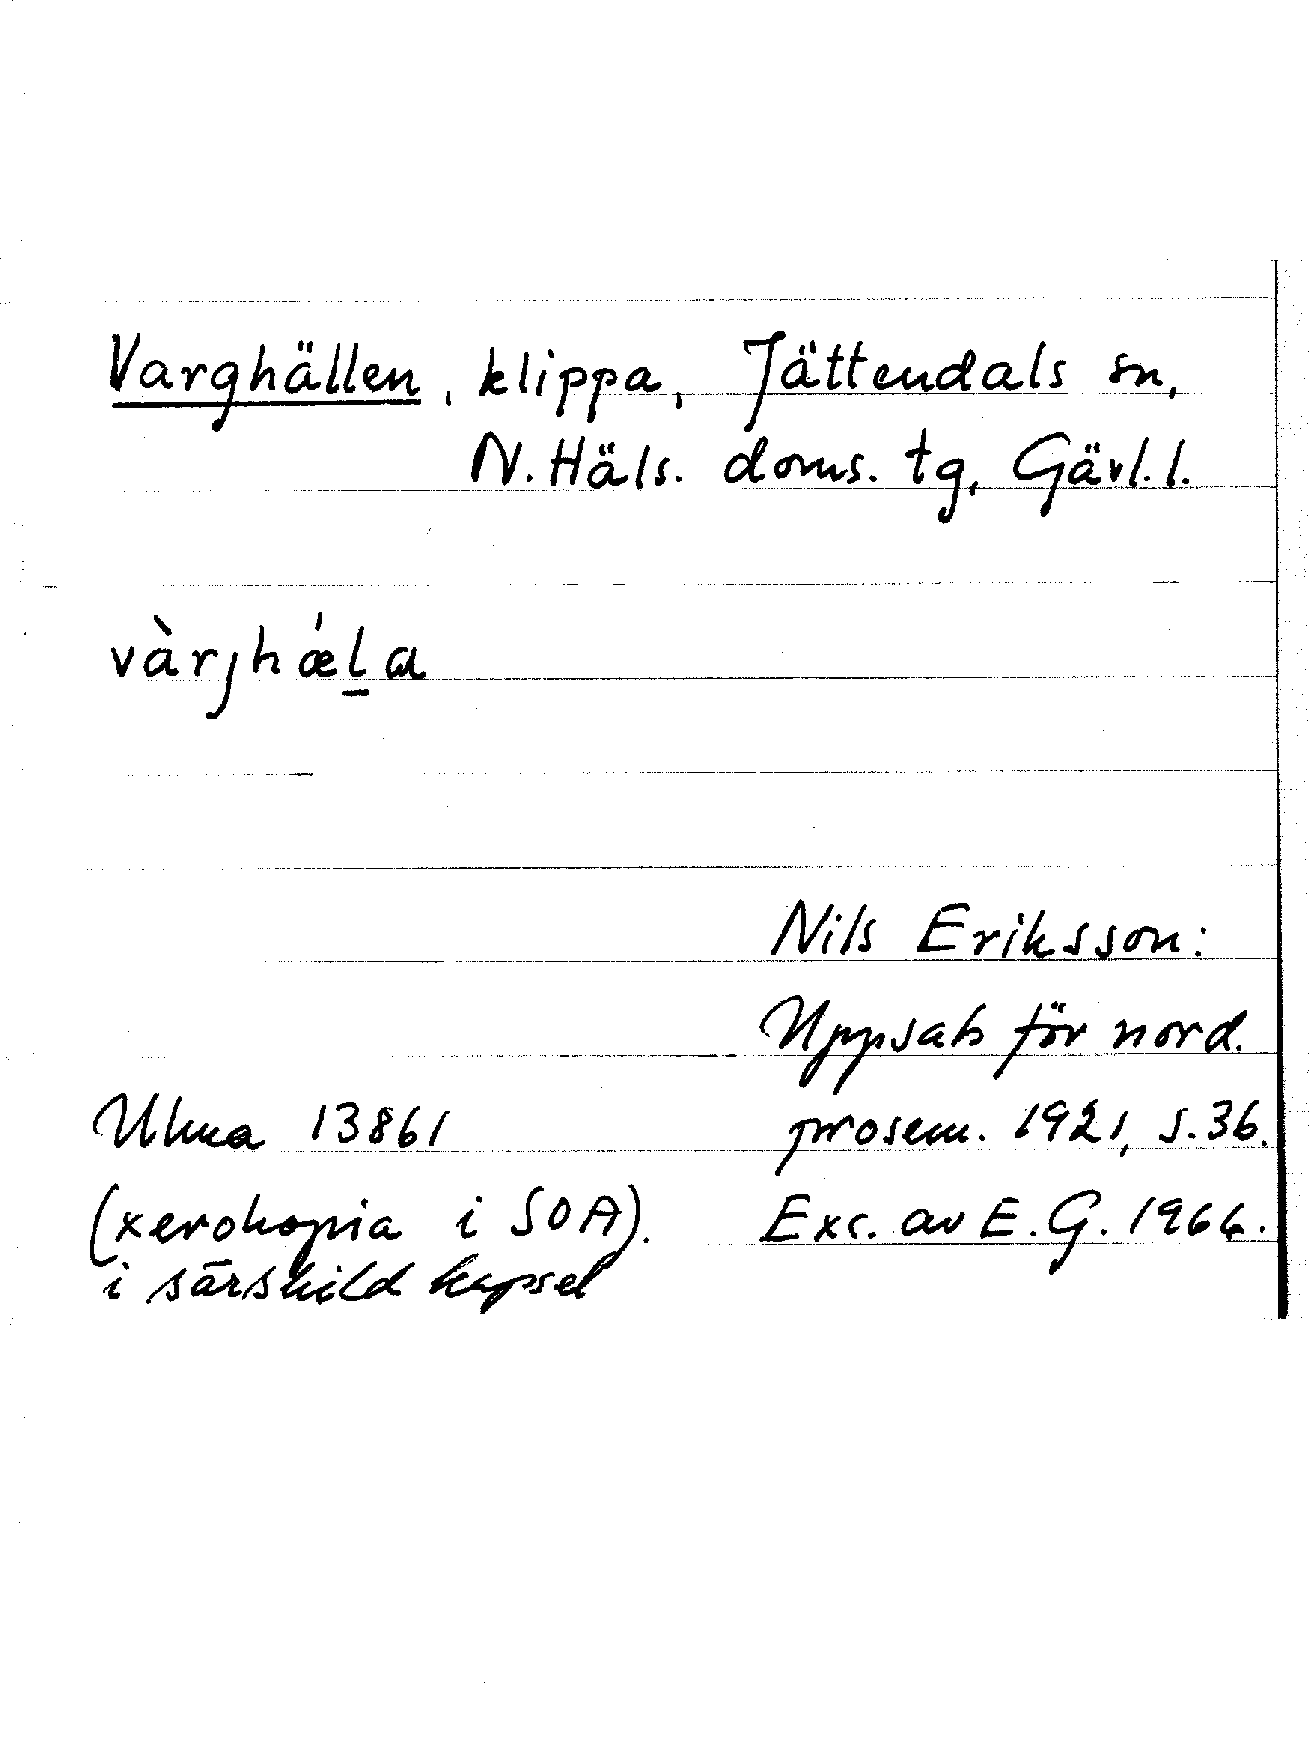 Varghällen, klippa, Jättendals sn,
N. Häls. doms. tg, Gävl. l.
vàrjhǽl̠a
Nils Eriksson:
Uppsats för nord.
Ulma 13861 prosem. 1921, s. 36.
(xerokopia i SOA). Exc. av E. G. 1966.
i särskild kapsel